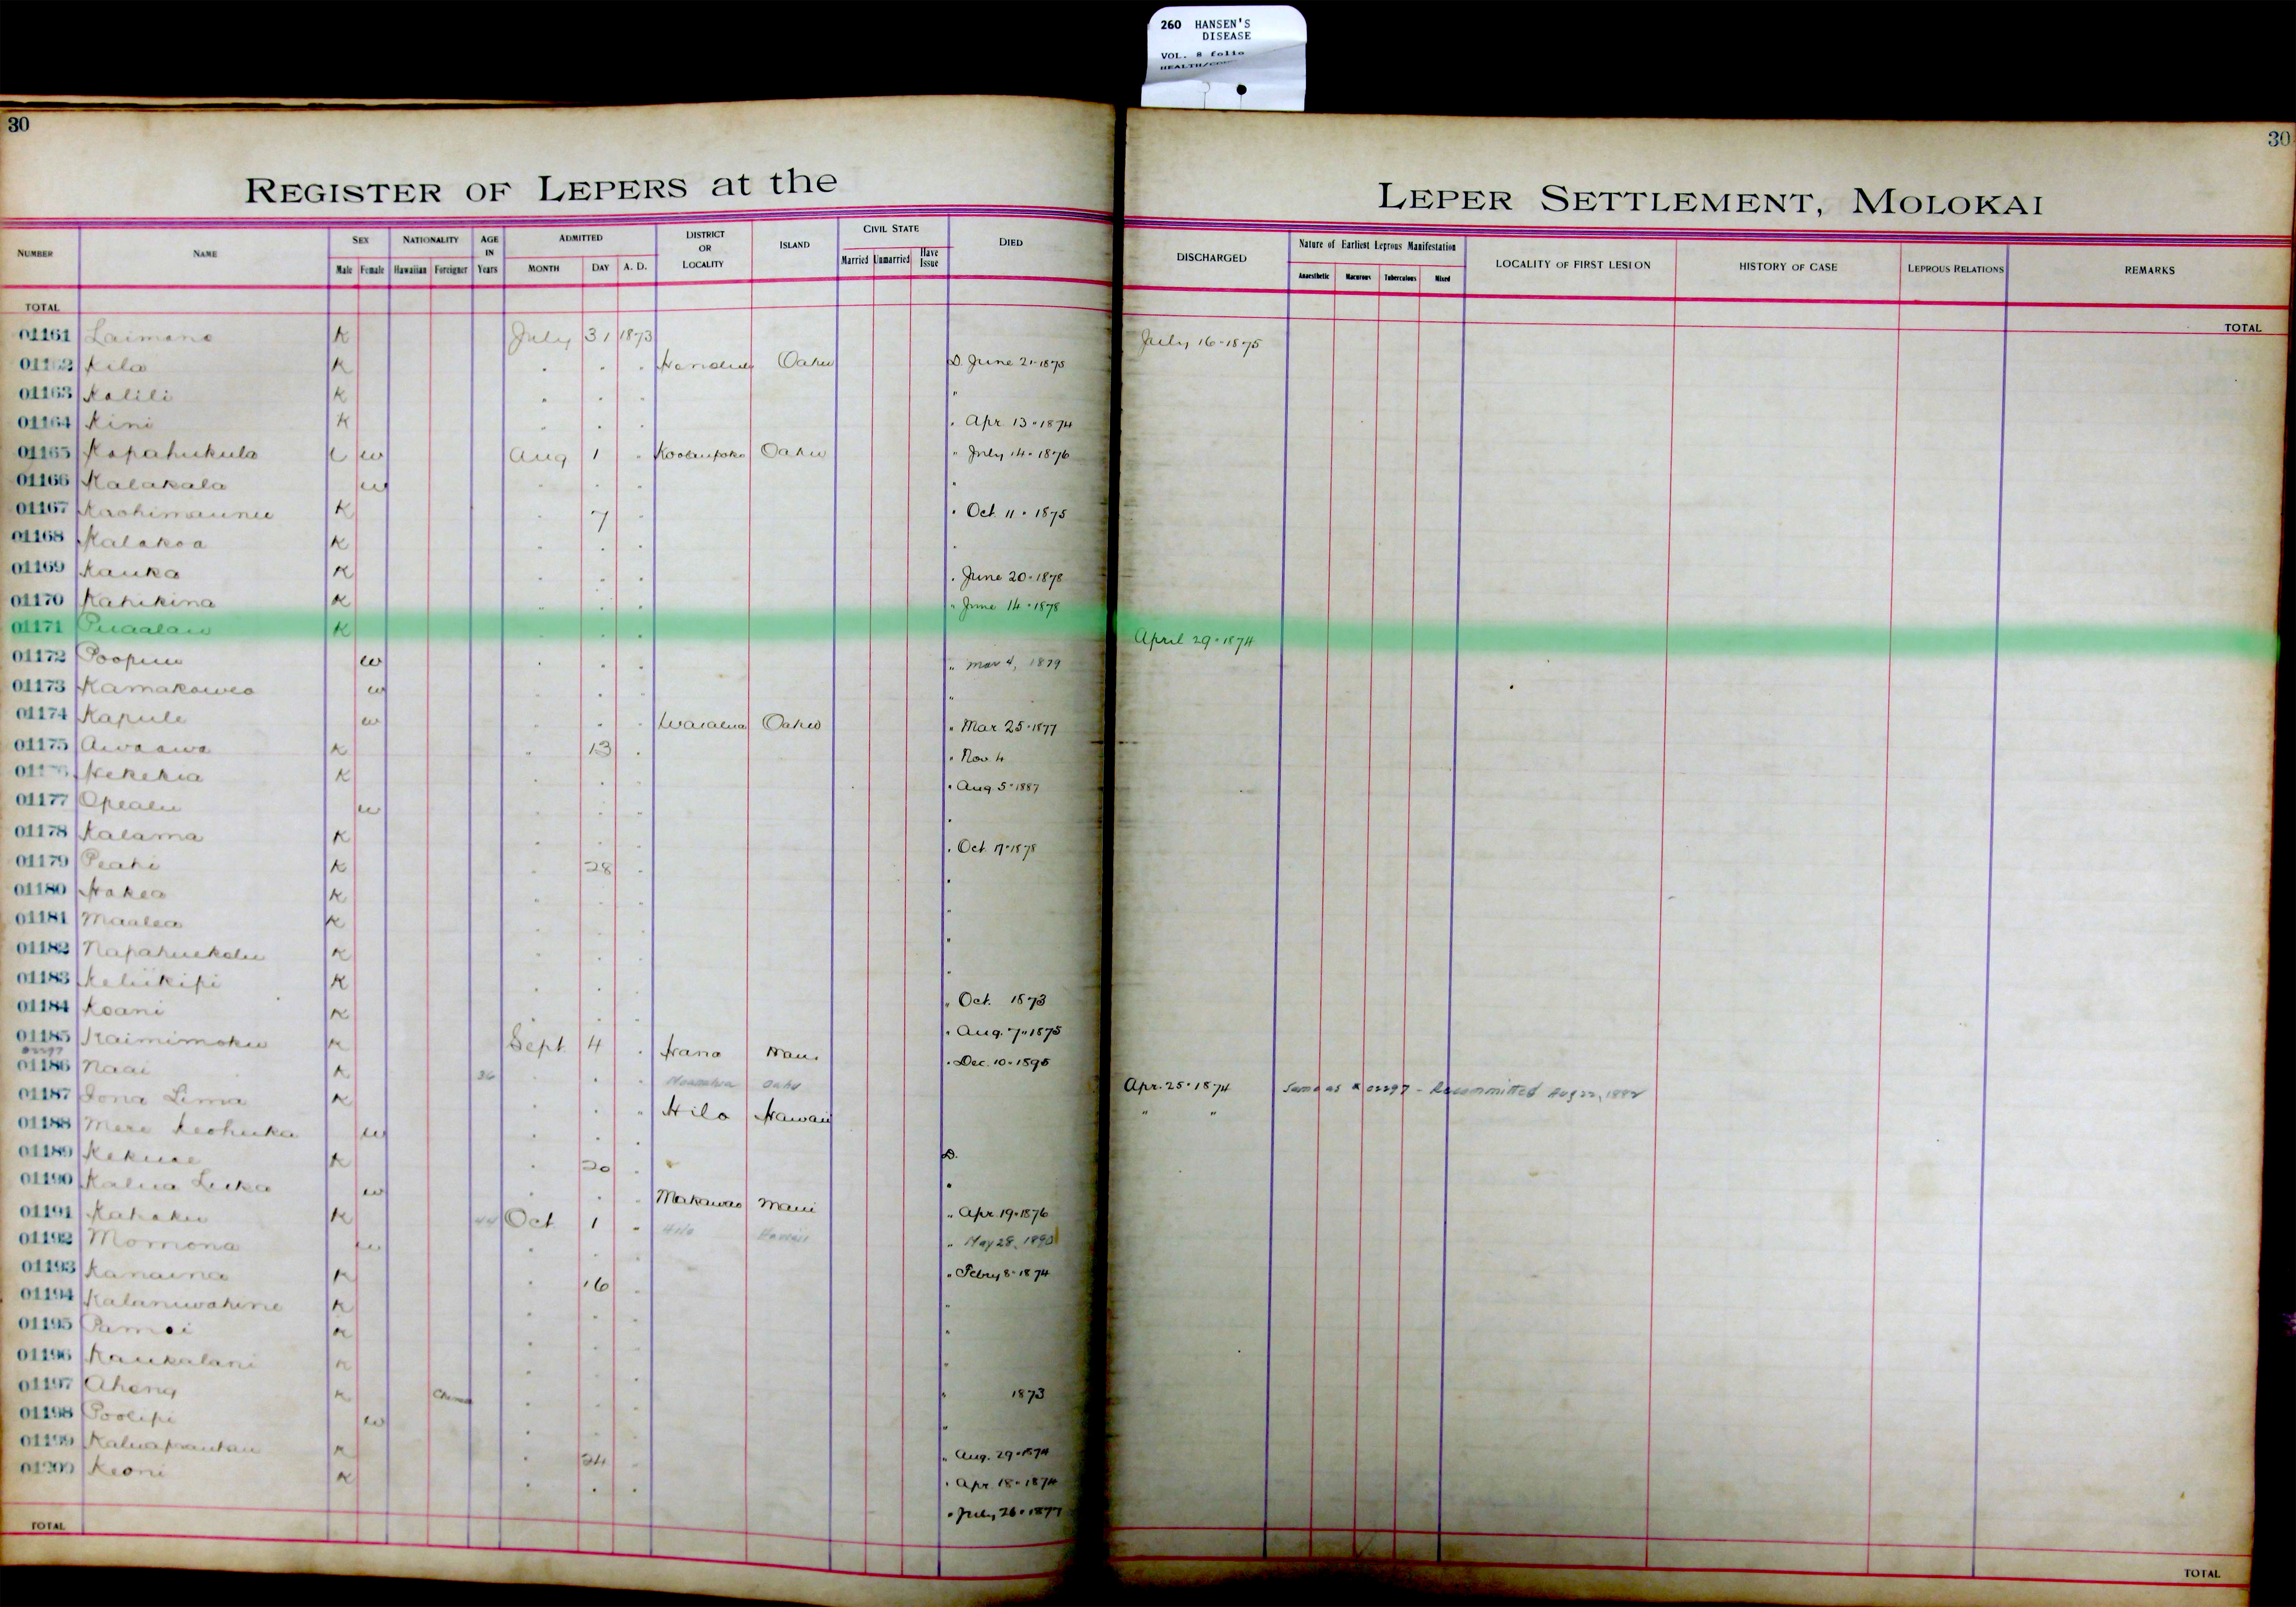 260 HANSEN'S
DISEASE
VOL. 8 folio
30
30
REGISTER OF LEPERS at the
LEPER SETTLEMENT, MOLOKAI
NUMBER NAME SEX Male Female NATIONALITY Hawaiian Foreigner AGE IN Years ADMITTED MONTH DAY A. D. DISTRICT OR LOCALITY ISLAND CIVIL STATE Married Unmarried Have Issue DIED
DISCHARGED Nature of Earliest Leprous Manifestation Anaesthetic Tuberculous Mixed LOCALITY OF FIRST LESION HISTORY OF CASE LEPROUS RELATIONS REMARKS
TOTAL TOTAL
01161 Laimana K July 31 1873 July 16-1875
Kila K " " " Honolulu Oahu D. June 21-1875
01163 Kalili K " " " "
01164 Kini K " " " " Apr. 13-1874
01165 Kapahukula w Aug 1 " Koolaupoko Oahu " July 14-1876
01166 Kalakala w " " " "
01167 K " 7 " " Oct. 11-1875
01168 Kalakoa K " " " "
01169 Kauka K " " " " June 20-1878
01170 Kahikina K " " " " June 14-1878
01171 Puaalau K " " " April 29-1874
01172 w " " " " Mar 4, 1879
01173 Kamakawea w " " " "
01174 Kapule w " " " Waialua Oahu " Mar. 25-1877
01175 Awaawa K " 13 " " Nov. 4
Kekekia K " " " " Aug 5-1887
01177 Opealu w " " " "
01178 Kalama K " " " " Oct. 17-1878
01179 Peahi K " 28 " "
01180 Hakea K " " " "
01181 Maalea K " " " "
01182 Napahuekolu K " " " "
01183 Keliikipi K " " " " Oct. 1873
01184 Koani K " " " " Aug. 7-1875
01185 Kaimimoku K Sept. 4 " Hana Maui " Dec. 10-1895
01186 Naai K 36 " " Oahu Apr. 25-1874 Same as # 02297 - Recommitted Aug 22, 1882
01187 Iona Lima K " " " Hilo Hawaii " "
01188 Mere Keohuka w " " " D.
01189 Kekuae K " 20 " "
01190 Kalua Luka w " " " Makawao Maui " Apr. 19-1876
01191 Kahaku K 44 Oct 1 " Hilo Hawaii " May 28, 1890
01192 Momona w " " " Febry 8-1874
01193 Kanaina K " 16 " "
01194 Kalaniwahine K " " " "
01195 K " " " "
01196 Kaukalani K " " "
01197 Aheng K China " " " " 1873
01198 Poolipi w " " " "
01199 K " 24 " " Aug. 29-1874
01200 Keoni K " " " " Apr. 18-1874
" July 26-1877
TOTAL TOTAL